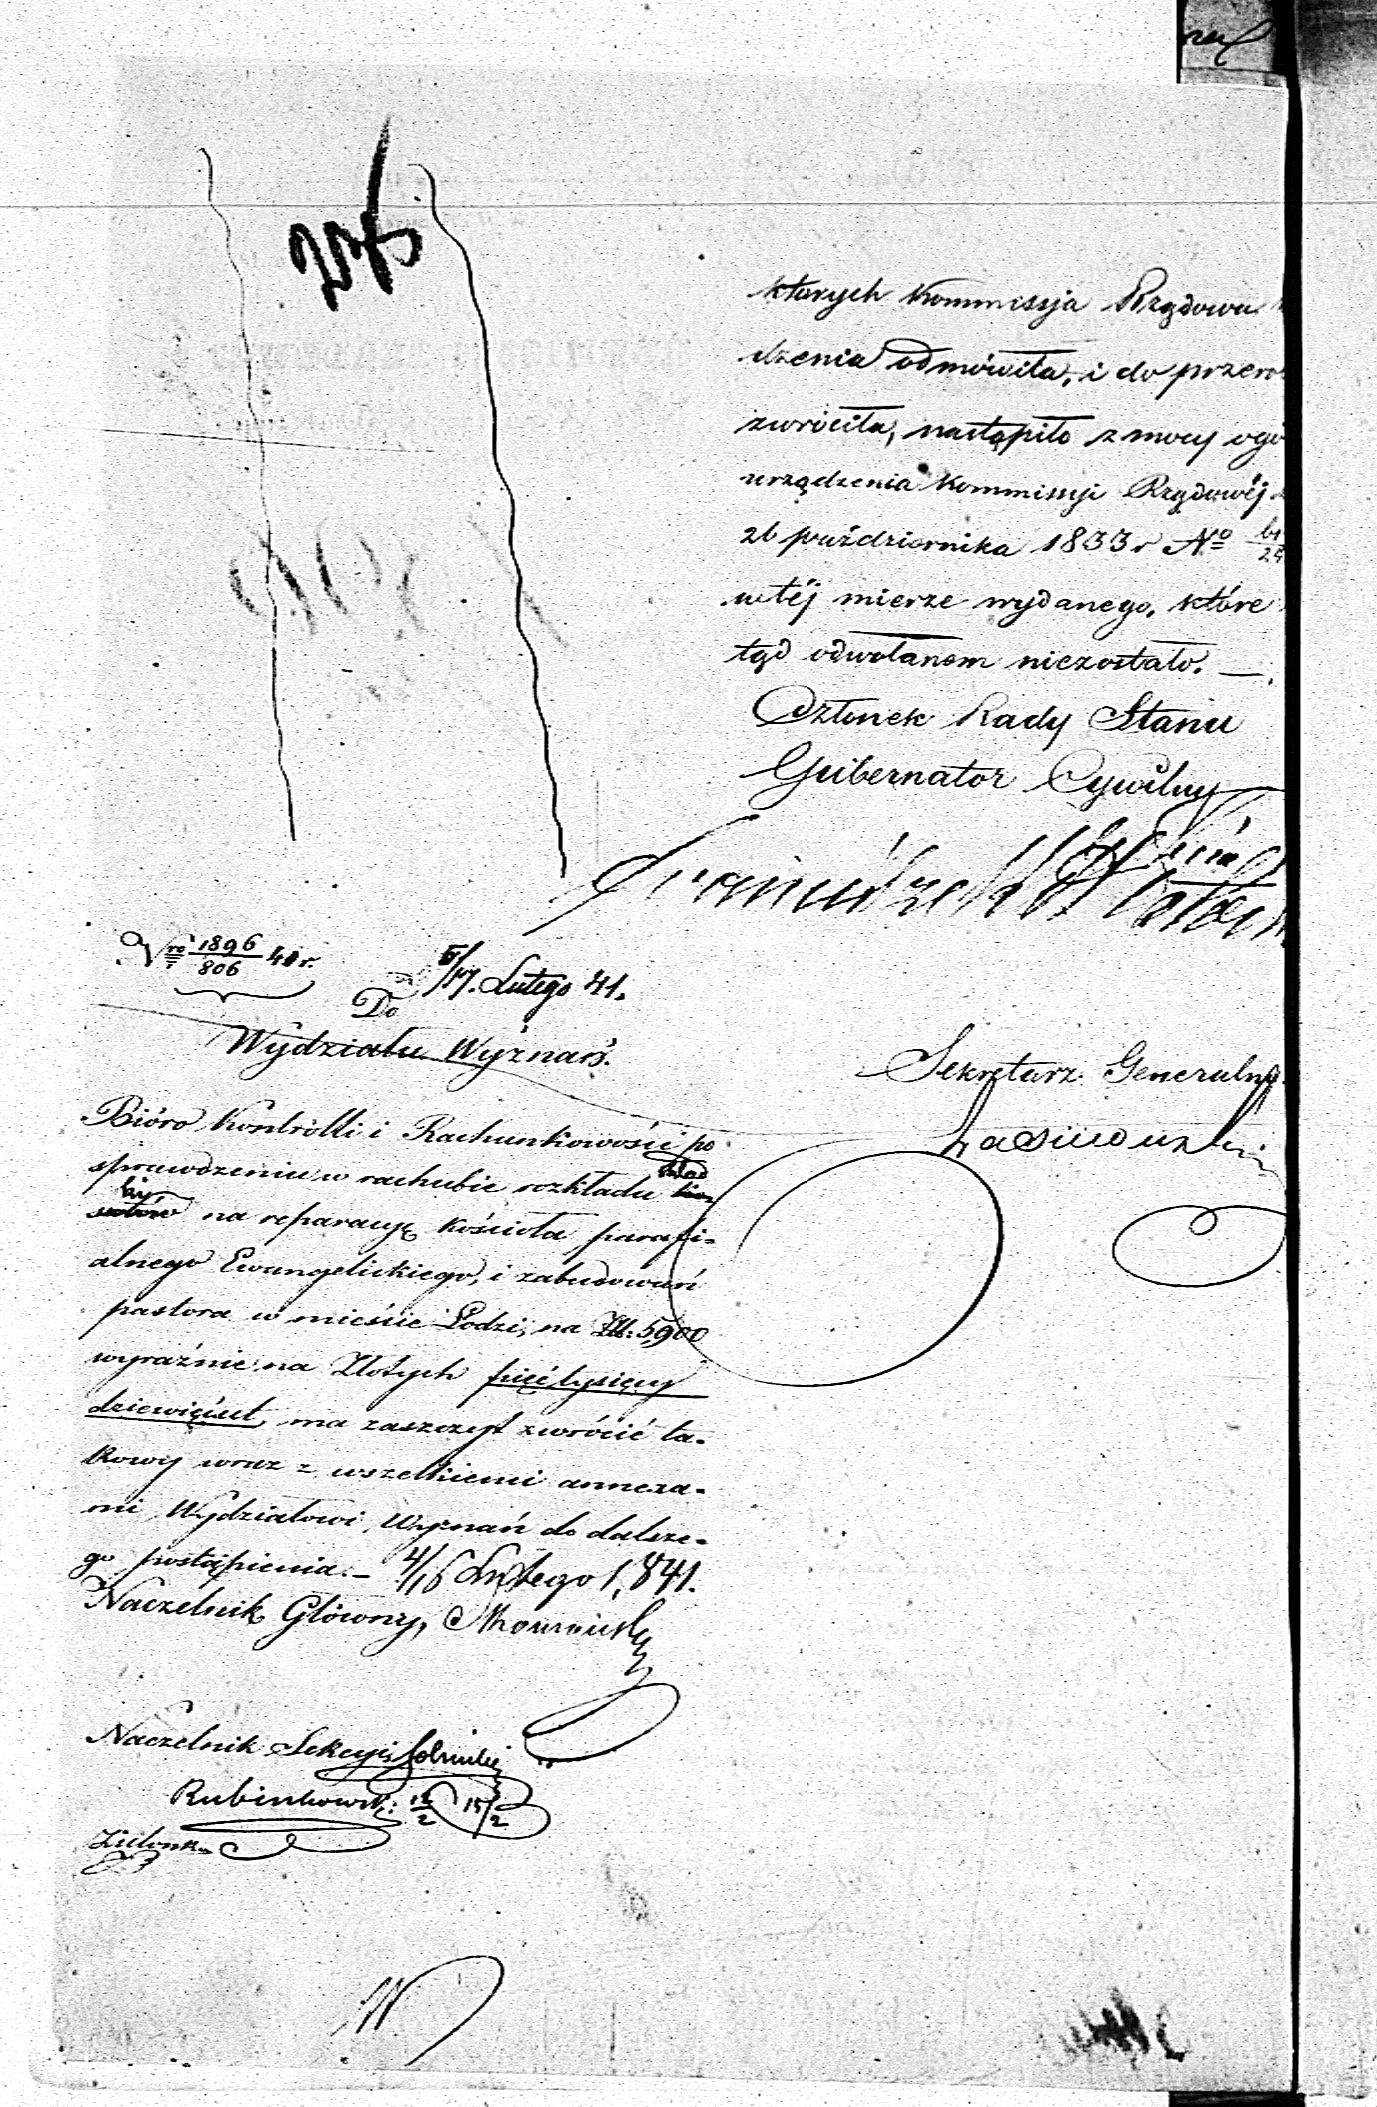 których Kommissja Rządowa
dzenia odmówiła, i do przero
zwróciła, nastąpiło z mocy ogó
urządzenia Kommissyi Rządowéj
26 października 1833 r No
w téj mierze wydanego, które
tąd odwołanem niezostało. —
Członek Rady Stanu
Gubernator Cywilny
Sekretarz Generalny
Nro 1896/806 40 r.
5/17. Lutego 41.
Do
Wydziału Wyznań.
Bióro Kontrolli i Rachunkowości po
sprawdzeniu w rachubie rozkładu skład
ki na reparacyę Kościoła parafi=
alnego Ewangelickiego, i zabudowań
pastora w mieście Łodzi, na Zł: 5900
wyraźnie na Złotych pięć tysięcy
dziewięćset, ma zaszczyt zwrócić ta=
kowy wraz z wszelkiemi annexa=
mi Wydziałowi Wyznań do dalsze=
go postąpienia. – 4/16 Lutego 1,841.
Naczelnik Główny,
Naczelnik Sekcyi
Rubinkowski 15/2
Zielonka